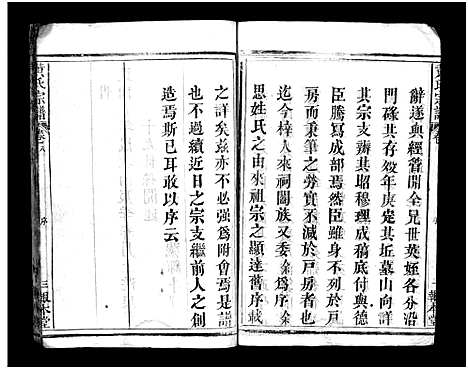 辭遂與經營開全兄世英姪各分沿
門碌其存歿年庚定其坵墓山向詳
其宗支其昭穆理成稿底付與德
臣騰寫成部焉然臣雖不列於戸
房而秉筆之勞實不減於戸房者也
迄今梓人來祠闔族又委余爲序
思姓氏之由來祖宗之顯達舊序載
之詳矣茲亦不必強爲附會焉是譜
也不過續近日之宗支繼前人之創
造焉斯已耳敢以序云
黃氏宗譜 卷 序 三報本堂